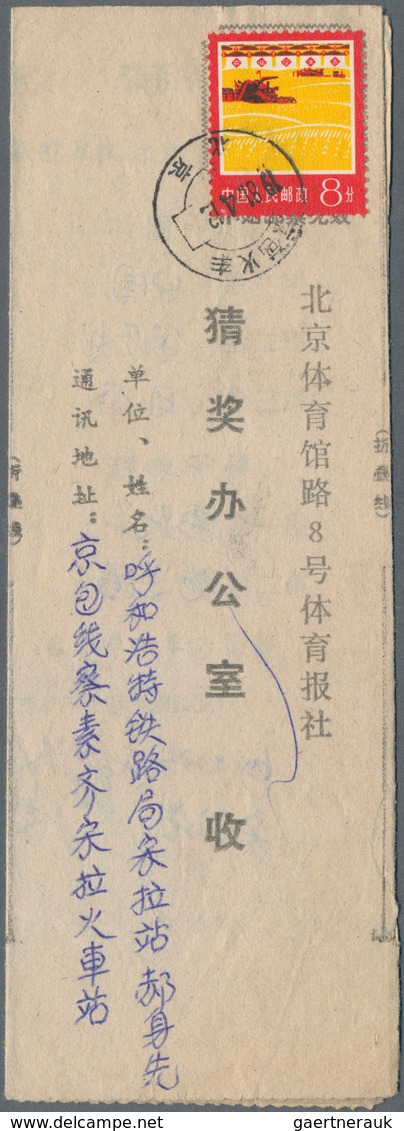 中国人民邮政 8分
北京
火车
北京体育馆路8号体育报社
猜奖办公室 收
单位、姓名：呼和浩特铁路局宋拉站 郝身先
通讯地址：京包线察素齐宋拉火車站
(折叠线)
gaertnerauk
gaertnerauk.com